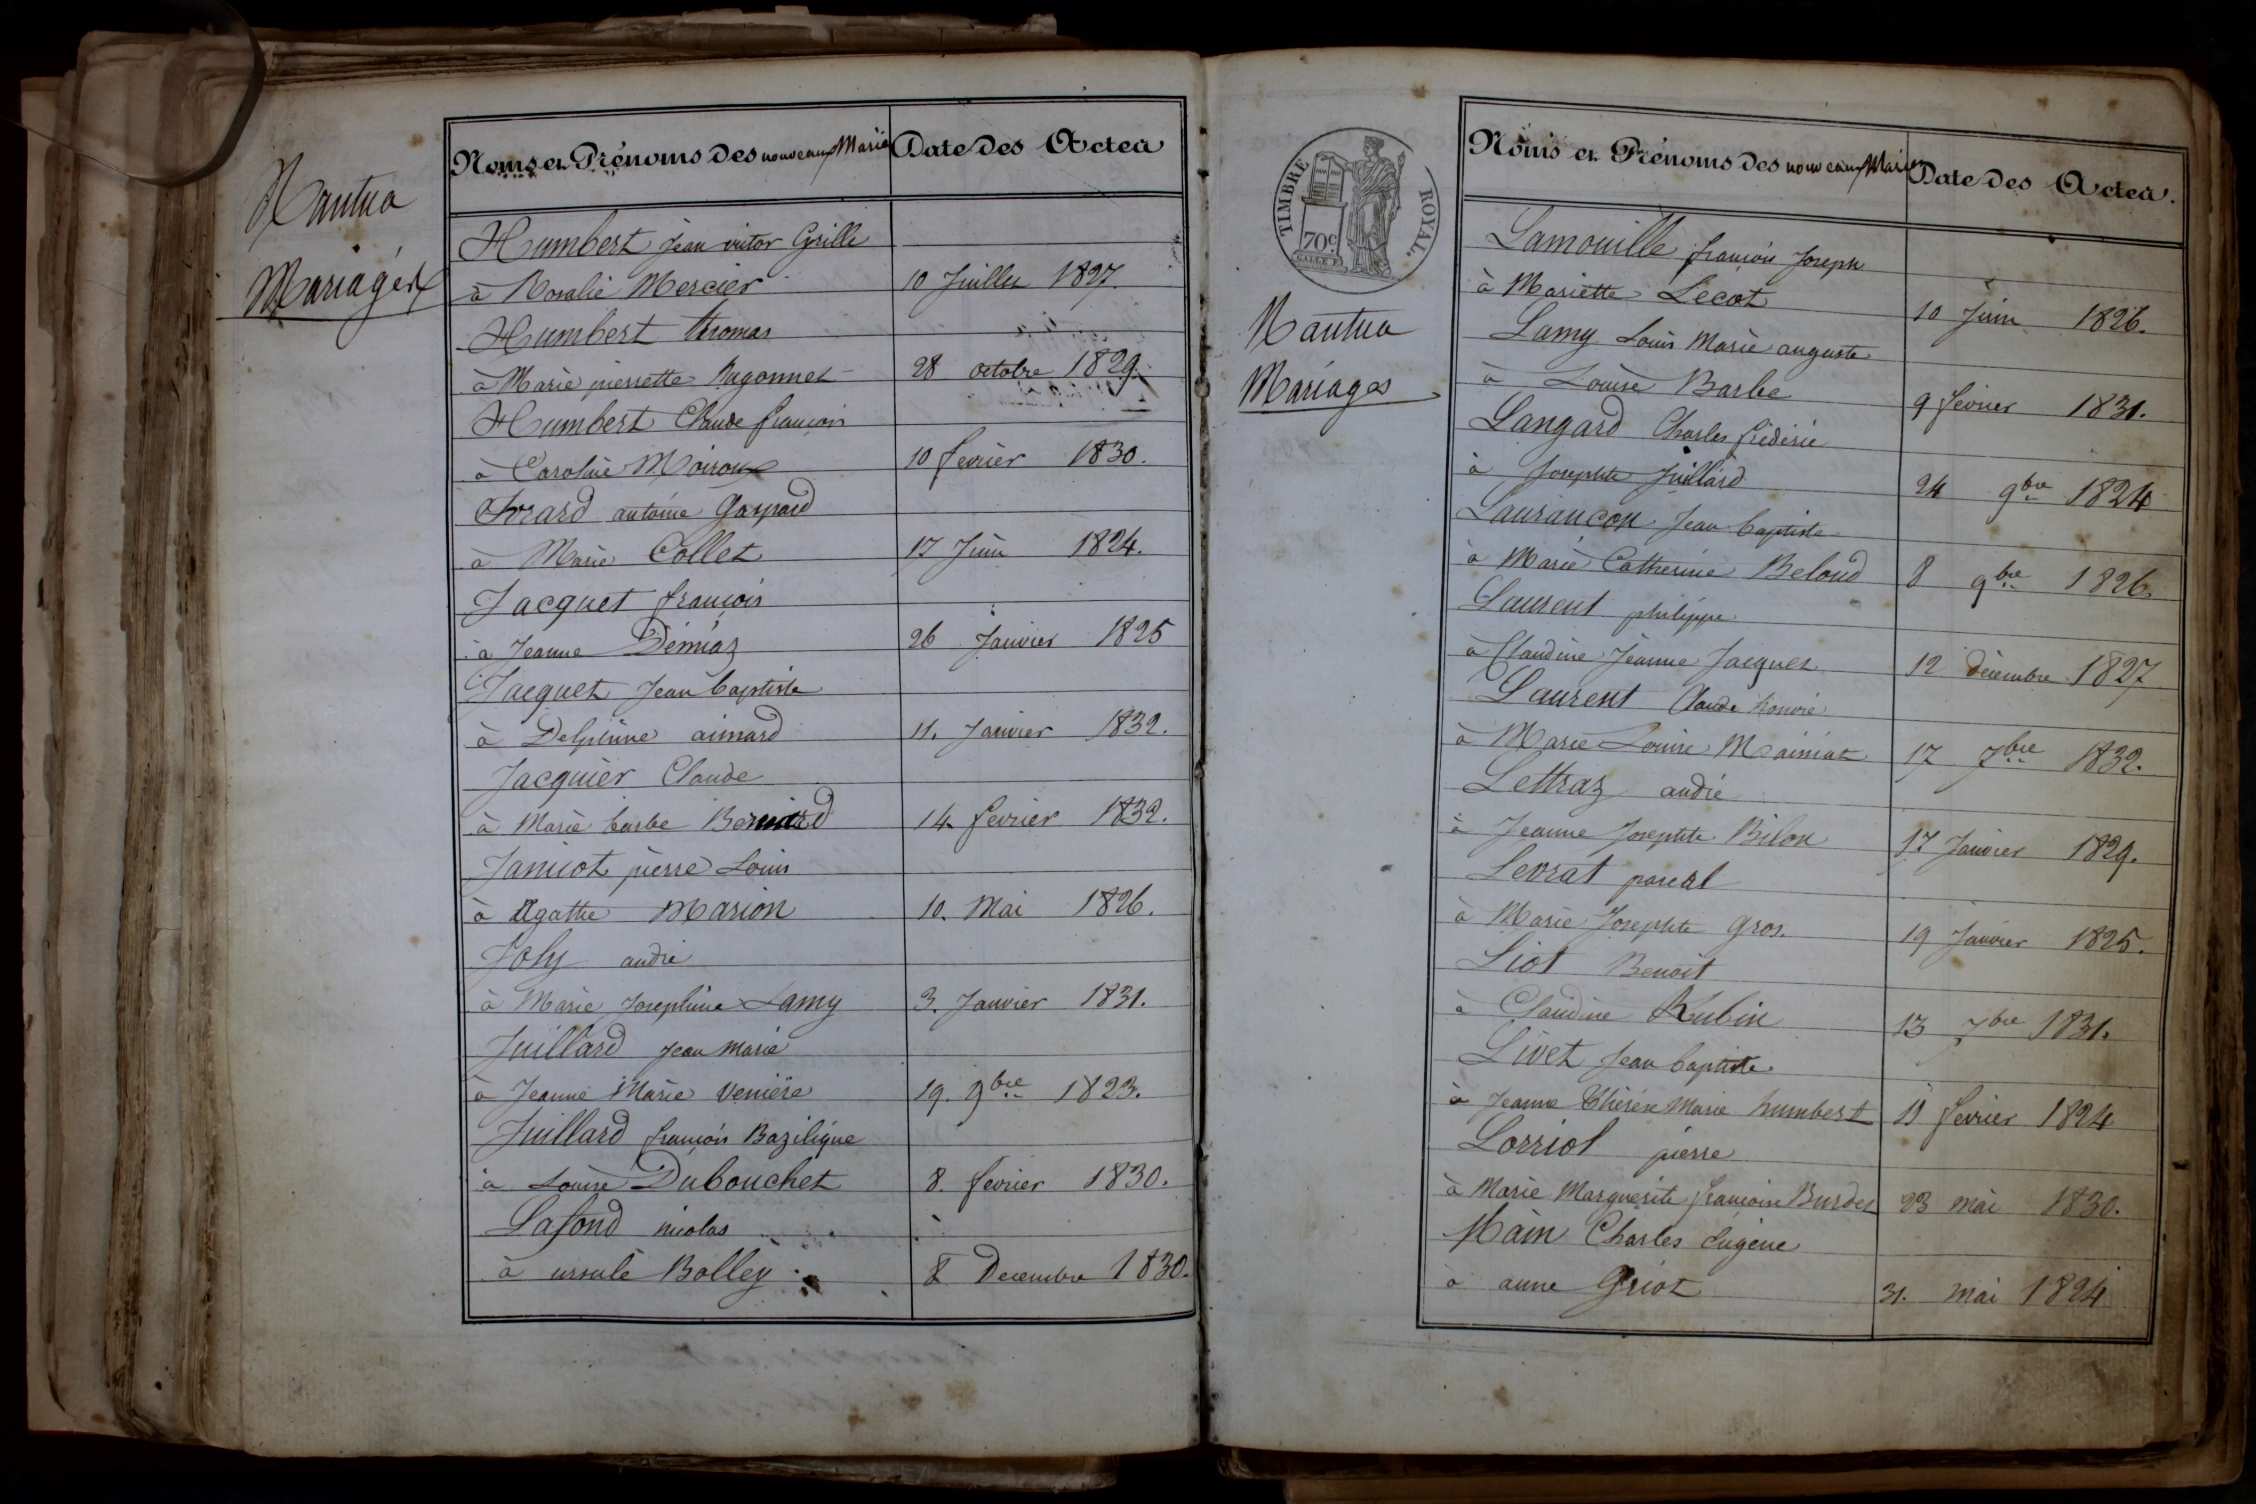 Nantua
Mariages
Noms et Prénoms Des nouveaux Mariés Date Des Actes
Humbert jean victor Grille
à Rosalie Mercier 10 Juillet 1827.
Humbert thomas
à Marie pierrette Ragonnet 28 octobre 1829.
Humbert Claude françois
à Caroline Moiroux 10 fevrier 1830.
Jvrard antoine Gaspard
à Marie Collet 17 Juin 1824.
Jacquet françois
à Jeanne Démiaz 26 Janvier 1825
Jacquet Jean baptiste
à Delphine aimard 11. Janvier 1832.
Jacquier Claude
à Marie barbe Bernard 14 fevrier 1832.
Janicot pierre Louis
à Agathe Marion 10. Mai 1826.
Joly andré
à Marie Josephine Lamy 3. Janvier 1831.
Juillard jean marie
à Jeanne Marie Venière 19. 9bre 1823.
Juillard françois Bazilique
à Louise Dubouchet 8. fevrier 1830.
Lafond nicolas
à ursule Bolley 8 Decembre 1830.
TIMBRE ROYAL.
70c.
Nantua
Mariages
Noms et Prénoms des nouveaux Mariés Date Des Actes.
Lamouille françois Joseph
à Mariette Lecot 10 Juin 1826.
Lamy Louis Marie auguste
à Louise Barbe 9 fevrier 1831.
Langard Charles frédéric
à Josephte Juillard 24 9bre 1824
Laurançon Jean baptiste
à Marie Catherine Beloud 8 9bre 1826.
Laurent philippe
à Claudine Jeanne Jacquet 12 décembre 1827
Laurent Claude honoré
à Marie Louise Mainiat 17 7bre 1832.
Lettraz andré
à Jeanne Josephte Bilon 17 Janvier 1829.
Levrat pascal
à Marie Josephte gros. 19 Janvier 1825.
Liot Benoit
à Claudine Rubin 13 7bre 1831.
Livet jean baptiste
à Jeanne Thérèse Marie humbert 11 fevrier 1824
Lorriol pierre
à Marie Marguerite françoise Burdet 23 mai 1830.
Main Charles Eugène
à anne Griot 31. mai 1824